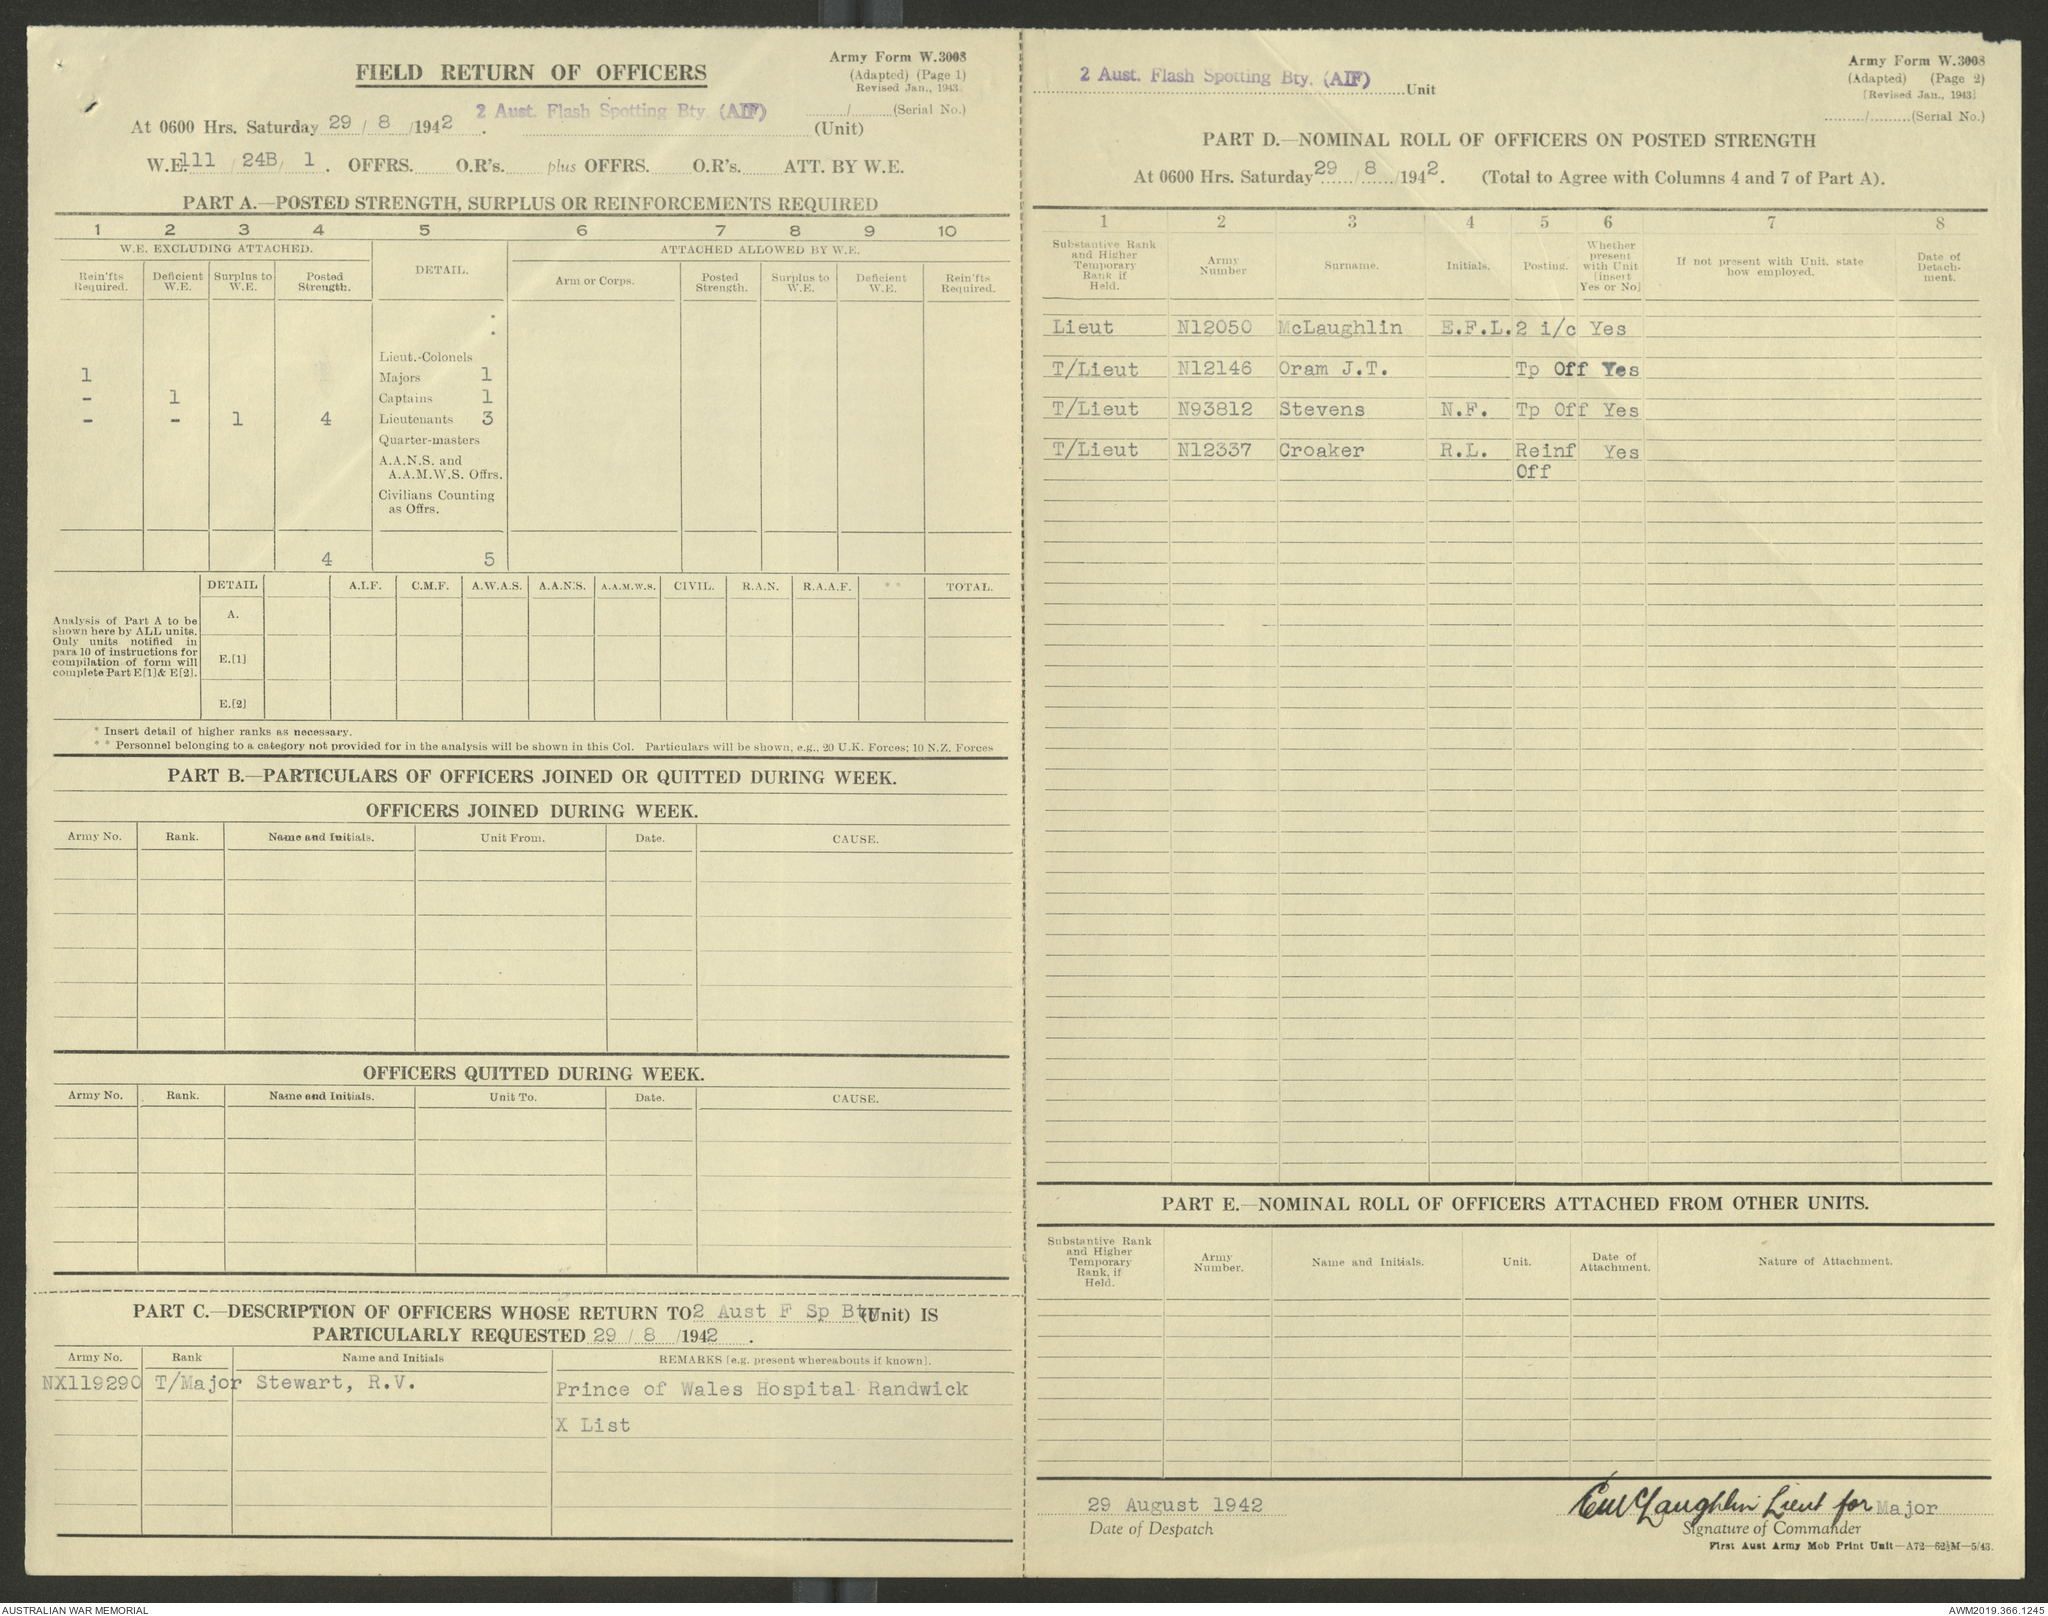 FIELD RETURN OF OFFICERS
Army Form W.3008
(Adapted) (Page 1)
Revised Jan., 1943
2 Aust. Flash Spotting Bty. (AIF)
......../.........(Serial No.)
At 0600 Hrs. Saturday 29 / 8 /1942 . (Unit)
W.E. 111 / 24B/ 1 . OFFRS. O.R's. plus OFFRS. O.R's. ATT. BY W.E.
PART A.—POSTED STRENGTH, SURPLUS OR REINFORCEMENTS REQUIRED
1 2 3 4 5 6 7 8 9 10
W.E. EXCLUDING ATTACHED. DETAIL. ATTACHED ALLOWED BY W.E.
Rein'fts Required. Deficient W.E. Surplus to W.E. Posted Strength. Arm or Corps. Posted Strength. Surplus to W.E. Deficient W.E. Rein'fts Required.
Lieut.-Colonels
1 Majors 1
- 1 Captains 1
- - 1 4 Lieutenants 3
Quarter-masters
A.A.N.S. and
A.A.M.W.S. Offrs.
Civilians Counting
as Offrs.
4 5
DETAIL A.I.F. C.M.F. A.W.A.S. A.A.N.S. A.A.M.W.S. CIVIL. R.A.N. R.A.A.F. * * TOTAL.
Analysis of Part A to be
shown here by ALL units.
Only units notified in
para 10 of instructions for
compilation of form will
complete Part E[1]& E[2].
A.
E.[1]
E.[2]
* Insert detail of higher ranks as necessary.
* * Personnel belonging to a category not provided for in the analysis will be shown in this Col. Particulars will be shown, e.g., 20 U.K. Forces; 10 N.Z. Forces
PART B.—PARTICULARS OF OFFICERS JOINED OR QUITTED DURING WEEK.
OFFICERS JOINED DURING WEEK.
Army No. Rank. Name and Initials. Unit From. Date. CAUSE.
OFFICERS QUITTED DURING WEEK.
Army No. Rank. Name and Initials. Unit To. Date. CAUSE.
PART C.—DESCRIPTION OF OFFICERS WHOSE RETURN TO 2 Aust F Sp Bty (Unit) IS
PARTICULARLY REQUESTED 29 / 8 /1942 .
Army No. Rank Name and Initials REMARKS [e.g. present whereabouts if known].
NX119290 T/Major Stewart, R.V. Prince of Wales Hospital Randwick
X List
2 Aust. Flash Spotting Bty. (AIF) Unit
Army Form W.3008
(Adapted) (Page 2)
[Revised Jan., 1943]
........./.........(Serial No.)
PART D.—NOMINAL ROLL OF OFFICERS ON POSTED STRENGTH
At 0600 Hrs. Saturday 29 / 8 /1942. (Total to Agree with Columns 4 and 7 of Part A).
1 2 3 4 5 6 7 8
Substantive Rank and Higher Temporary Rank if Held. Army Number Surname. Initials. Posting. Whether present with Unit [insert Yes or No] If not present with Unit, state how employed. Date of Detach-ment.
Lieut N12050 McLaughlin E.F.L. 2 i/c Yes
T/Lieut N12146 Oram J.T. Tp Off Yes
T/Lieut N93812 Stevens N.F. Tp Off Yes
T/Lieut N12337 Croaker R.L. Reinf Yes
Off
PART E.—NOMINAL ROLL OF OFFICERS ATTACHED FROM OTHER UNITS.
Substantive Rank and Higher Temporary Rank, if Held. Army Number. Name and Initials. Unit. Date of Attachment. Nature of Attachment.
29 August 1942
Date of Despatch
E McLaughlin Lieut for Major
Signature of Commander
First Aust Army Mob Print Unit—A72—52½M—5/43.
AUSTRALIAN WAR MEMORIAL
AWM2019.366.1245